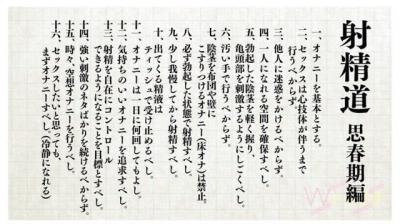 射精道 思春期編
一、オナニーを基本とする。
二、セックスは心技体が伴うまで
行うべからず。
三、他人に迷惑をかけるべからず。
四、一人になれる空間を確保すべし。
五、勃起した陰茎を軽く握り、
亀頭部を刺激するようにしごくべし。
六、汚い手で行うべからず。
七、陰茎を布団や壁に
こすりつけるオナニー(床オナ)は禁止。
八、必ず勃起した状態で射精すべし。
九、少し我慢してから射精すべし。
十、出てくる精液は
ティッシュで受け止めるべし。
十一、オナニーは一日に何回してもよし。
十二、気持ちのいいオナニーを追求すべし。
十三、射精を自在にコントロール
できるようになることを目標とすべし。
十四、強い刺激のネタばかりを続けるべからず。
十五、時々、空想オナニーを行うべし。
十六、セックスしたいと思っても、
まずオナニーすべし。(冷静になれる)